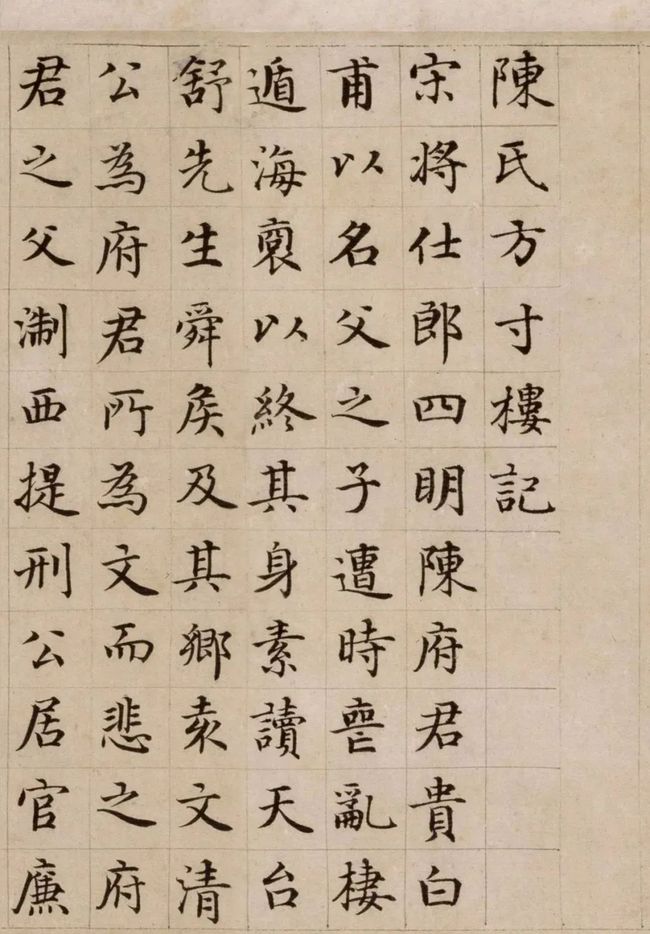 陳氏方寸樓記
宋將仕郎四明陳府君貴白
甫以名父之子遭時喪亂棲
遁海裔以終其身素讀天台
舒先生舜矦及其鄉袁文清
公為府君所為文而悲之府
君之父淛西提刑公居官廉